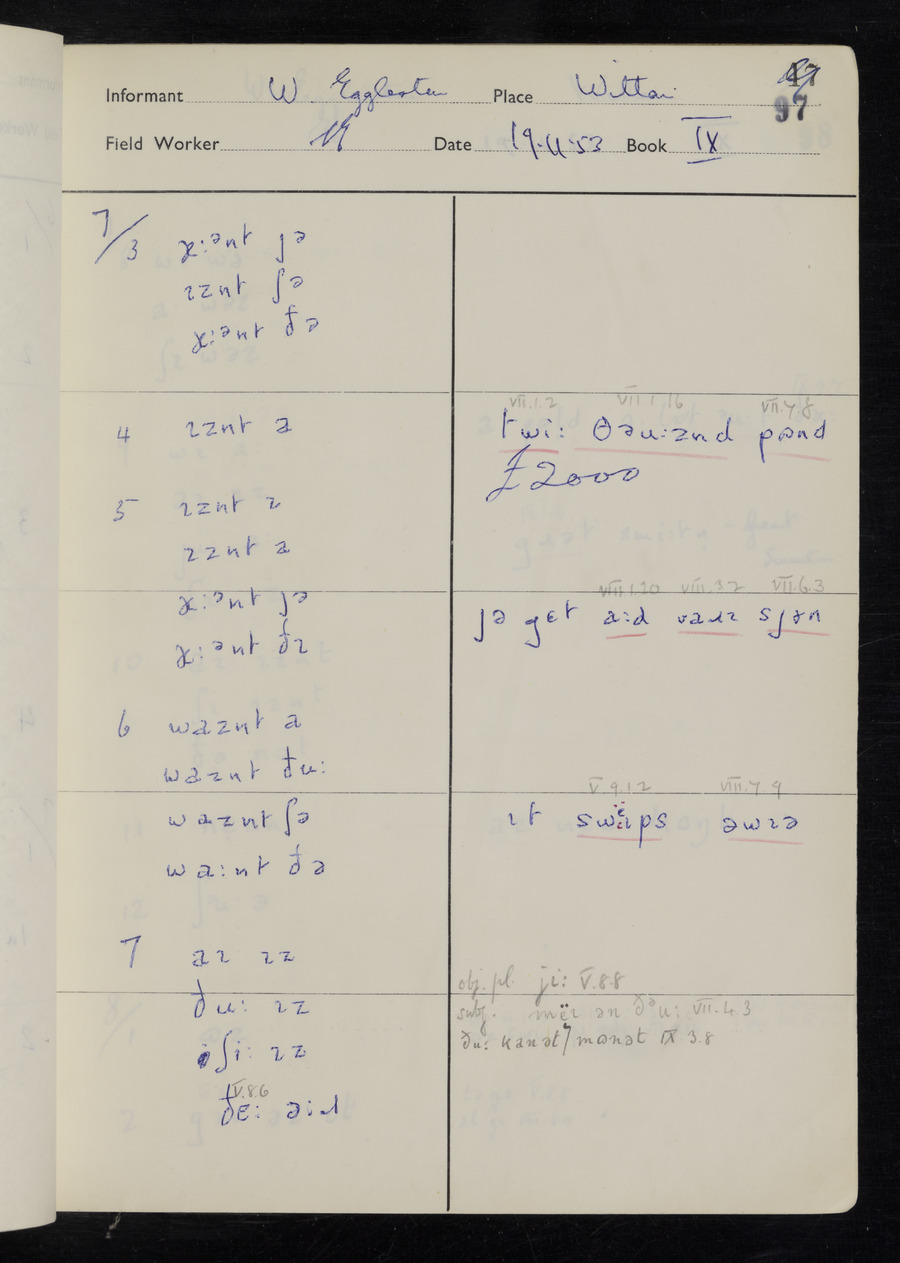 97
Informant W Eggleston Place Witton
Field Worker Date 19.11.53 Book IX
7/3 ɛ:ənt jə
ɪznt ʃə
ɛ:ənt ðə
4 ɪznt ə
5 ɪznt ɪ
ɪznt ə
ɛ:ənt jə
ɛ:ənt ðɪ
6 waznt a
waznt ðu:
waznt ʃə
wa:nt ðə
7 aɪ ɪz
ðu: ɪz
ʃi: ɪz
V.8.6
ðɛ:
VII.1.2 VII.1.16 VII.7.8
twi: θəu:znd
£2000
VIII.1.20 VIII.3.2 VII.6.3
jə get
V.9.12 VIII.7.9
ɪt əwɪə
obj. pl. ji: V.8.8
subj. ən ðəu: VII.4.3
ðu: kanət / mənət IX 3.8